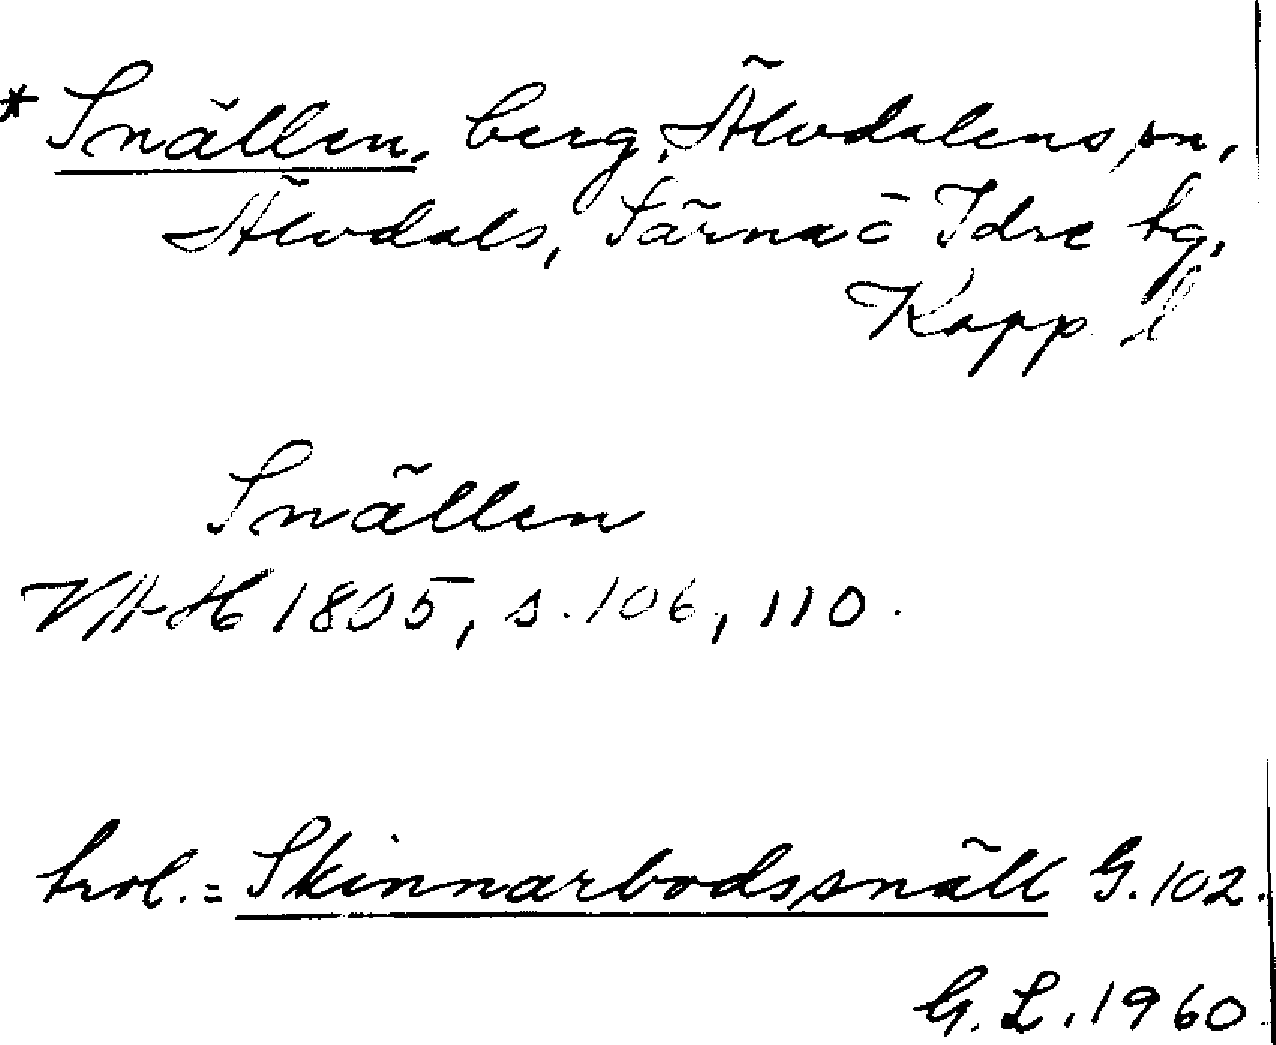 * Snällen, berg, Älvdalens sn,
Älvdals, Särna o Idre tg,
Kopp. l
Snällen
VAH 1805, s. 106, 110.
trol. = Skinnarbodssnäll G. 102.
G. L. 1960